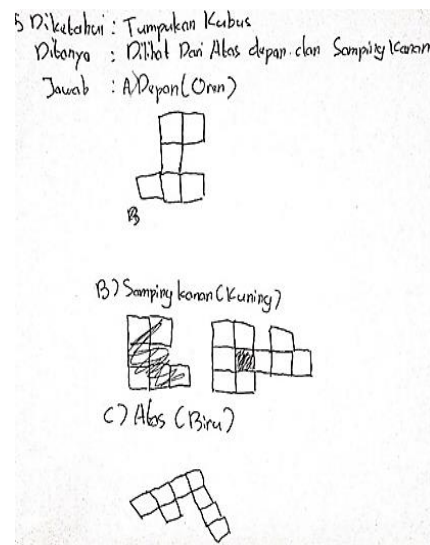 5 Diketahui : Tumpukan Kubus
Ditanya : Dilihat Dari Atas depan. dan Samping kanan
Jawab : A) Depan (Oren)
B
B) Samping kanan (Kuning)
C) Atas (Biru)